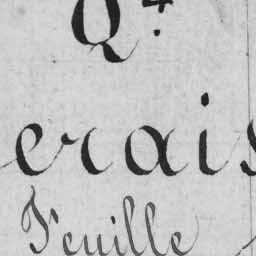 Q.4
erais
Feuille